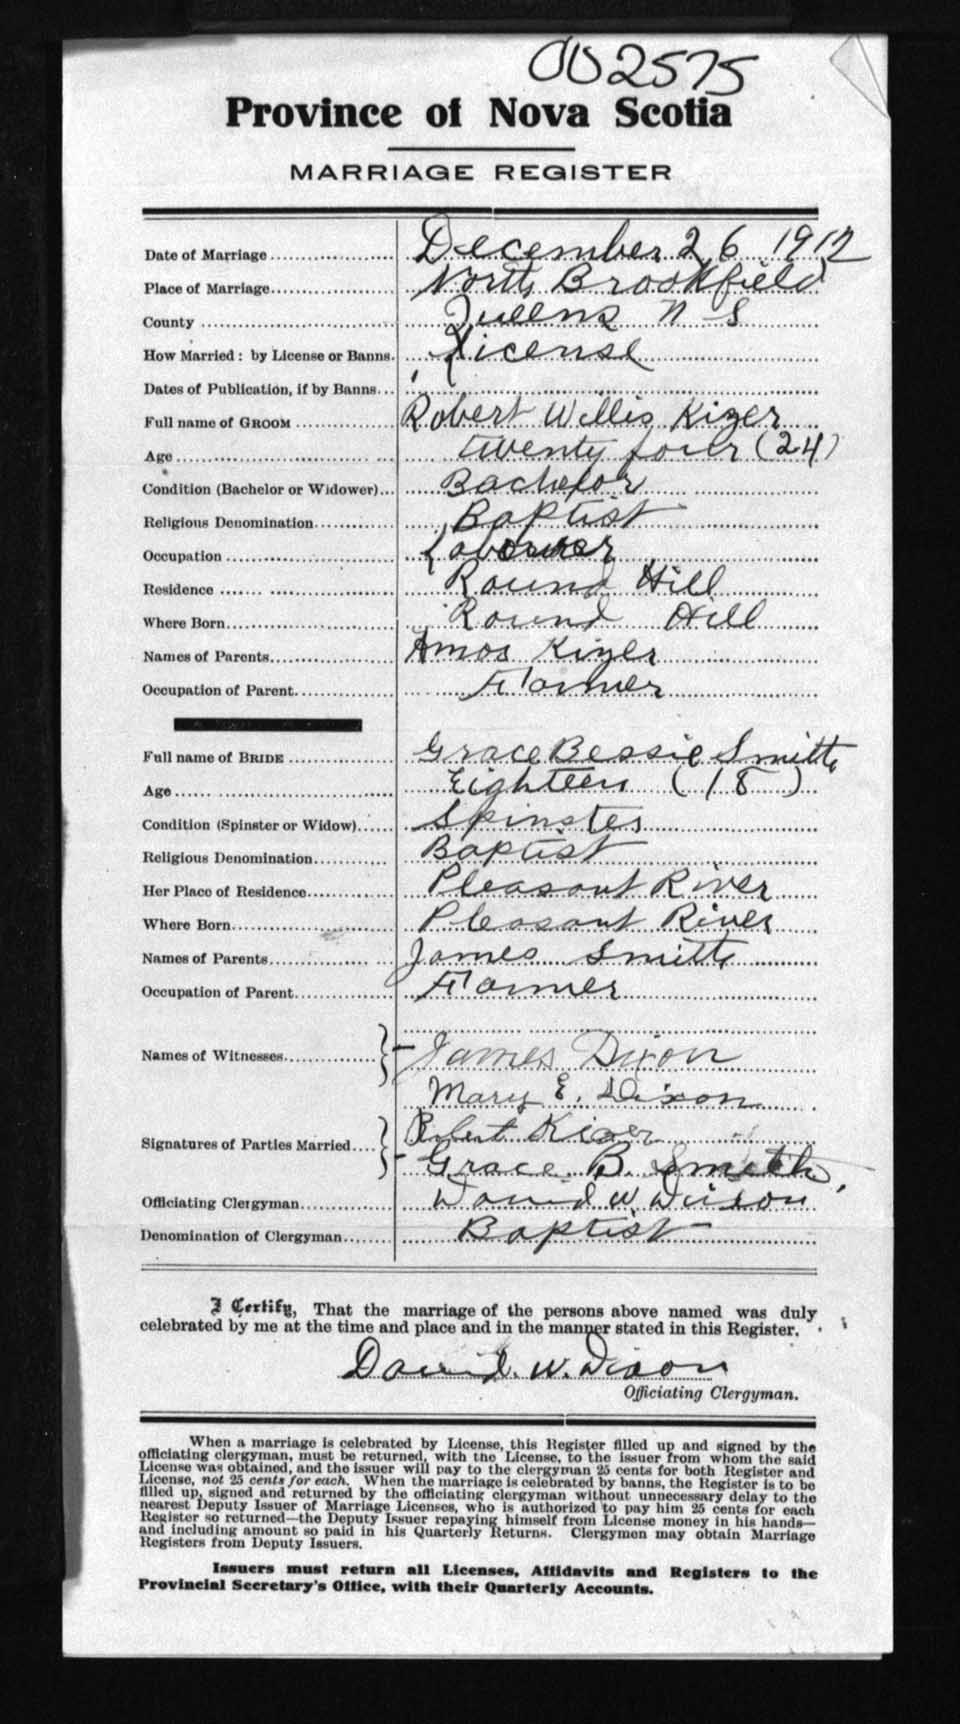 002575
Province of Nova Scotia
MARRIAGE REGISTER
Date of Marriage December 26 1912
Place of Marriage North Brookfield
County Queens N S
How Married: by License or Banns. License
Dates of Publication, if by Banns
Full name of GROOM Robert Willis Kizer
Age twenty four (24)
Condition (Bachelor or Widower) Bachelor
Religious Denomination Baptist
Occupation Labourer
Residence Round Hill
Where Born Round Hill
Names of Parents Amos Kizer
Occupation of Parent Farmer
Full name of BRIDE Grace Bessie Smith
Age Eighteen (18)
Condition (Spinster or Widow) Spinster
Religious Denomination Baptist
Her Place of Residence Pleasant River
Where Born Pleasant River
Names of Parents James Smith
Occupation of Parent Farmer
Names of Witnesses James Dixon
Mary E. Dixon
Signatures of Parties Married Robert Kizer
Grace B. Smith
Officiating Clergyman David W. Dixon
Denomination of Clergyman Baptist
I Certify, That the marriage of the persons above named was duly
celebrated by me at the time and place and in the manner stated in this Register.
David. W. Dixon
Officiating Clergyman.
When a marriage is celebrated by License, this Register filled up and signed by the
officiating clergyman, must be returned, with the License, to the issuer from whom the said
License was obtained, and the issuer will pay to the clergyman 25 cents for both Register and
License, not 25 cents for each. When the marriage is celebrated by banns, the Register is to be
filled up, signed and returned by the officiating clergyman without unnecessary delay to the
nearest Deputy Issuer of Marriage Licenses, who is authorized to pay him 25 cents for each
Register so returned—the Deputy Issuer repaying himself from License money in his hands—
and including amount so paid in his Quarterly Returns. Clergymen may obtain Marriage
Registers from Deputy Issuers.
Issuers must return all Licenses, Affidavits and Registers to the
Provincial Secretary's Office, with their Quarterly Accounts.